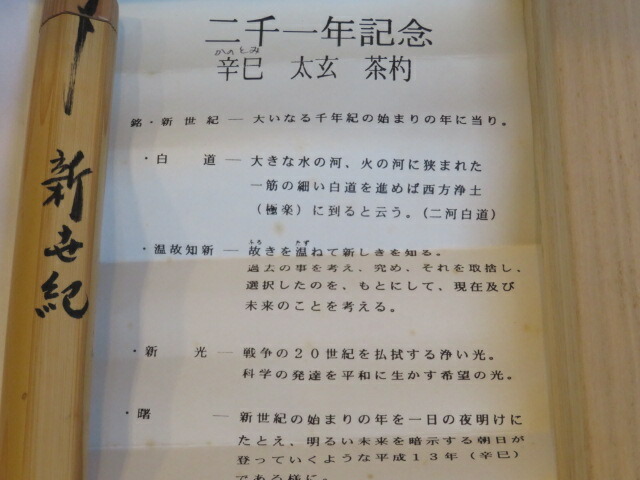 二千一年記念
かのとみ
辛巳 太玄 茶杓
銘・新世紀 ― 大いなる千年紀の始まりの年に当り。
・白道 ― 大きな水の河、火の河に狭まれた
一筋の細い白道を進めば西方浄土
（極楽）に到ると云う。（二河白道）
ふる たず
・温故知新 ― 故きを温ねて新しきを知る。
過去の事を考え、究め、それを取捨し、
選択したのを、もとにして、現在及び
未来のことを考える。
・新光 ― 戦争の２０世紀を払拭する浄い光。
科学の発達を平和に生かす希望の光。
・曙 ― 新世紀の始まりの年を一日の夜明けに
たとえ、明るい未来を暗示する朝日が
登っていくような平成１３年（辛巳）
である様に。
新世紀